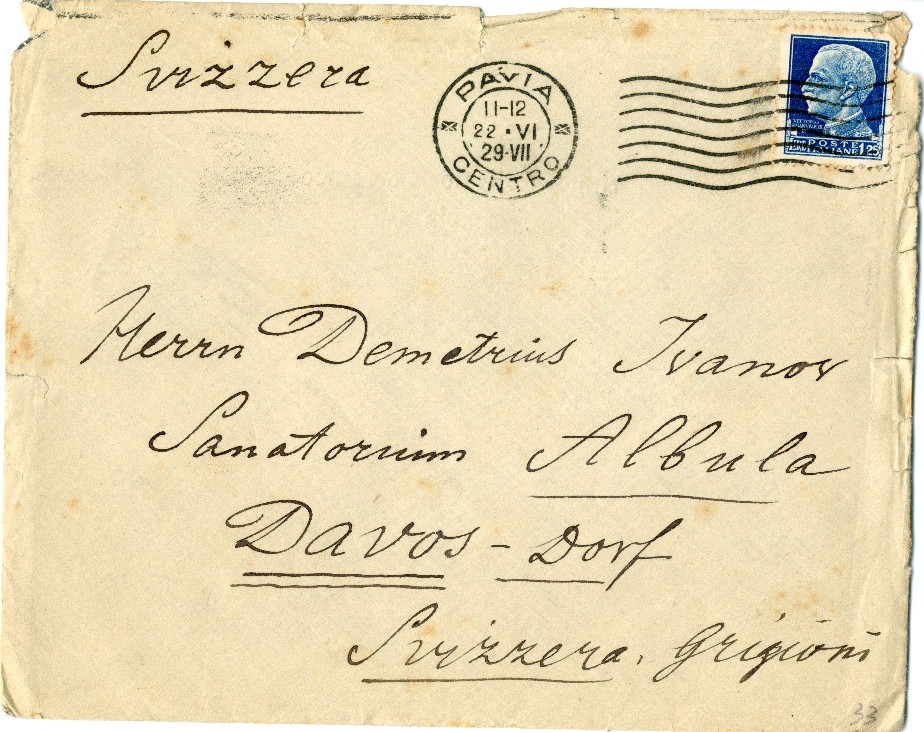 Svizzera
PAVIA
11-12
22 · VI
29-VII
CENTRO
POSTE
ITALIANE 1,25
Herrn Demetrius Ivanov
Sanatorium Albula
Davos - Dorf
Svizzera, Grigioni
33